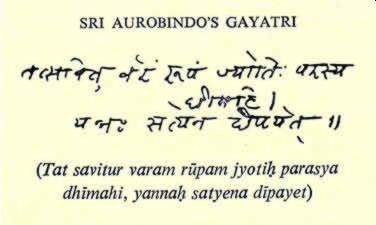 SRI AUROBINDO'S GAYATRI
तत्सवितु र्वरं रूपं ज्योतिः परस्य
धीमहि ।
यन्नः सत्येन दीपयेत् ॥
(Tat savitur varam rūpam jyotiḥ parasya
dhīmahi, yannaḥ satyena dīpayet)